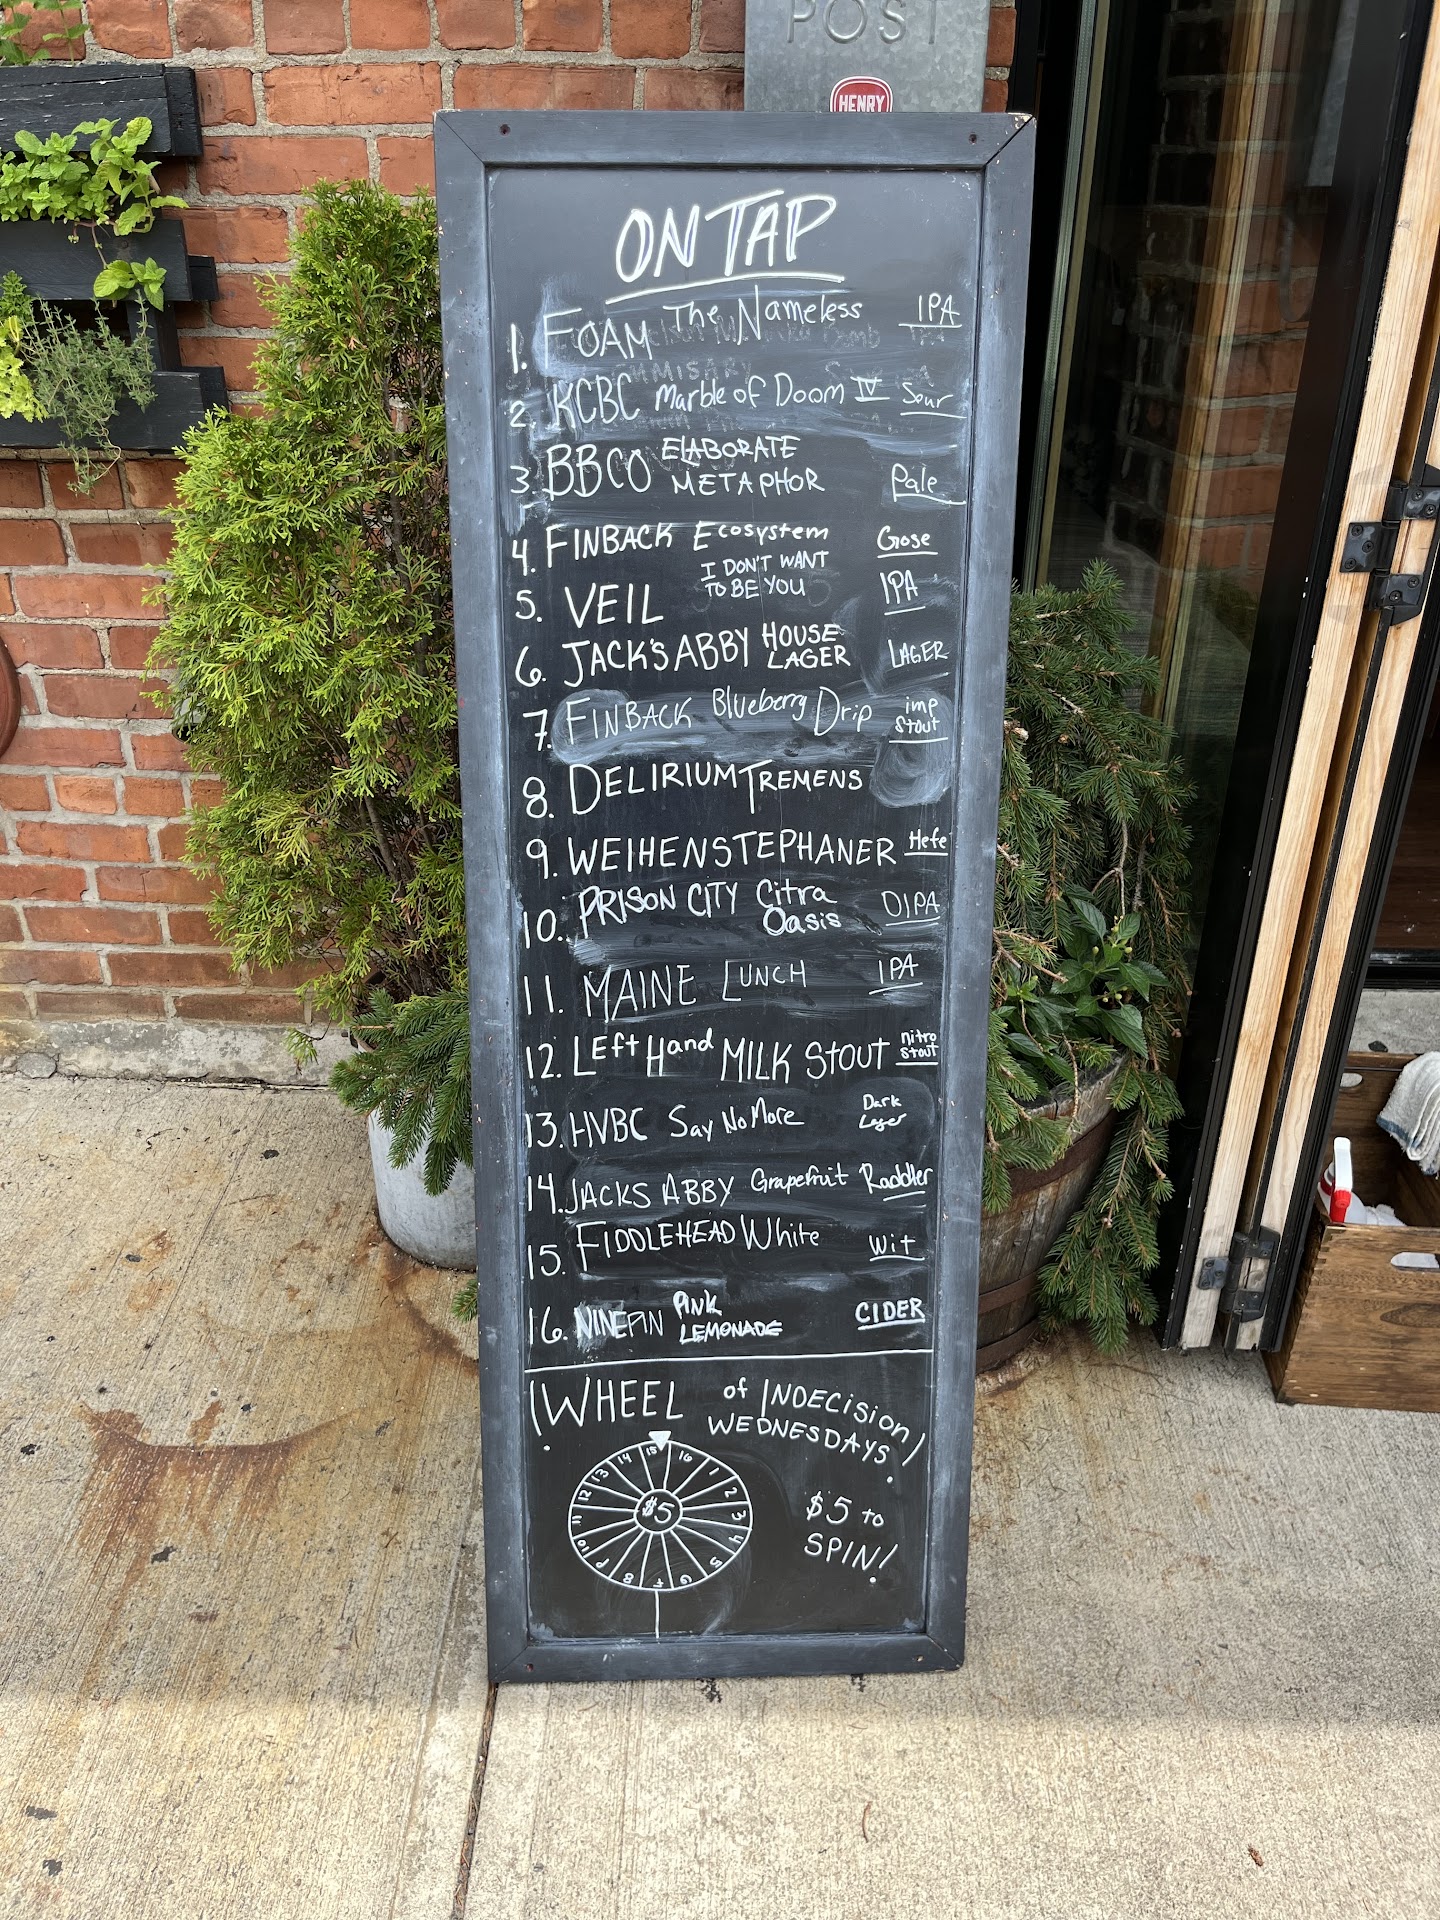 POST
HENRY
ON TAP
1. FOAM The Nameless IPA
2. KCBC Marble of Doom IV Sour
3. BBCO ELABORATE METAPHOR Pale
4. FINBACK Ecosystem Gose
5. VEIL I DON'T WANT TO BE YOU IPA
6. JACK'S ABBY HOUSE LAGER LAGER
7. FINBACK Blueberry Drip imp Stout
8. DELIRIUM TREMENS
9. WEIHENSTEPHANER Hefe
10. PRISON CITY Citra Oasis DIPA
11. MAINE LUNCH IPA
12. Left Hand MILK STOUT nitro stout
13. HVBC Say No More Dark Lager
14. JACKS ABBY Grapefruit Raddler
15. FIDDLEHEAD White Wit
16. NINEPIN PINK LEMONADE CIDER
WHEEL of INDECISION WEDNESDAYS!
15 16 1 2 3 4 5 6 7 8 9 10 11 12 13 14
$5
$5 to
SPIN!